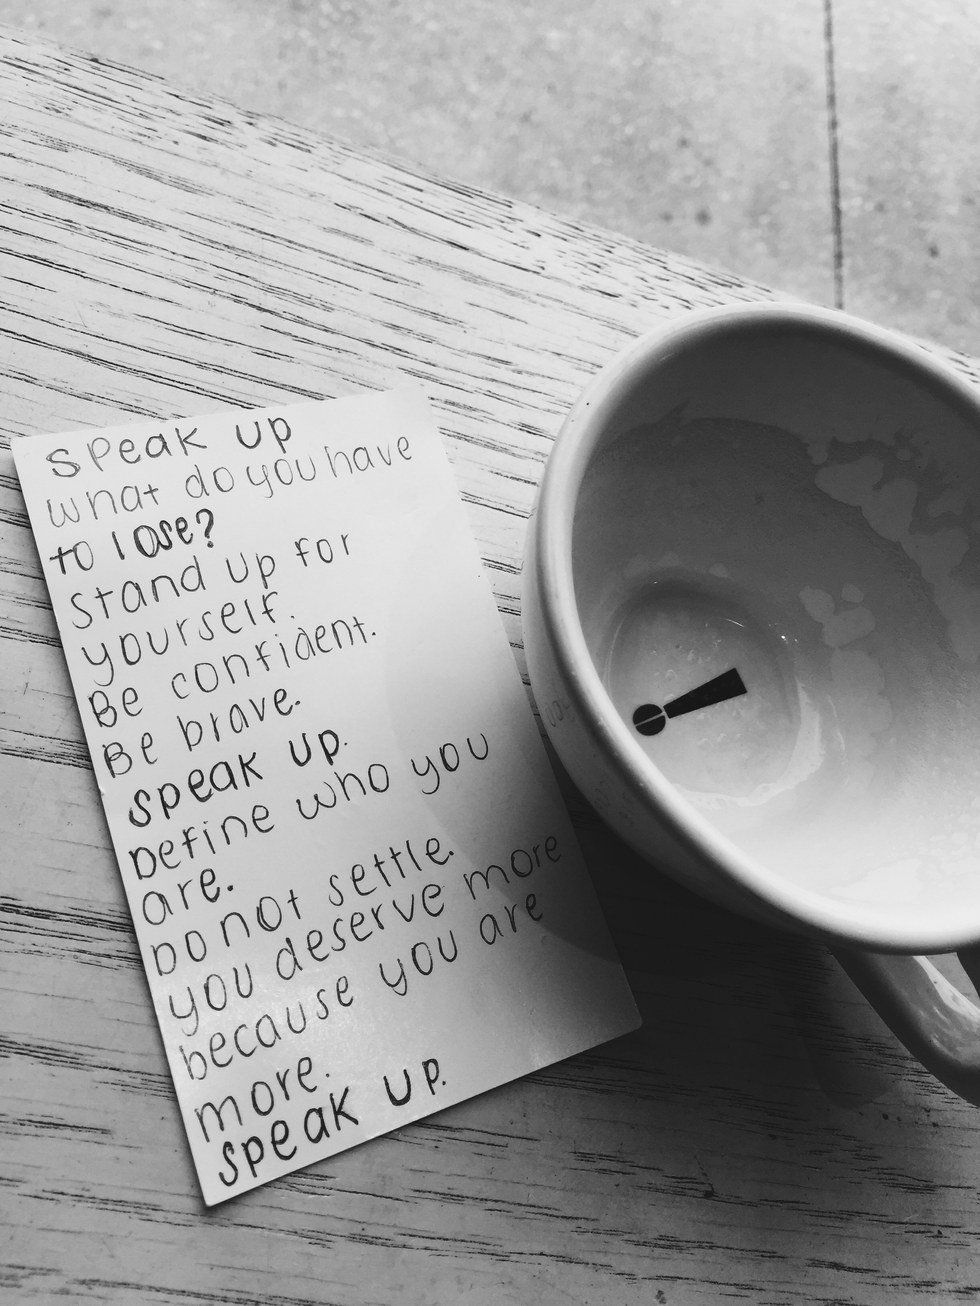 Speak up
what do you have
to lose?
Stand up for
yourself.
Be confident.
Be brave.
Speak up.
Define who you
are.
Do not settle.
you deserve more
because you are
more.
Speak up.